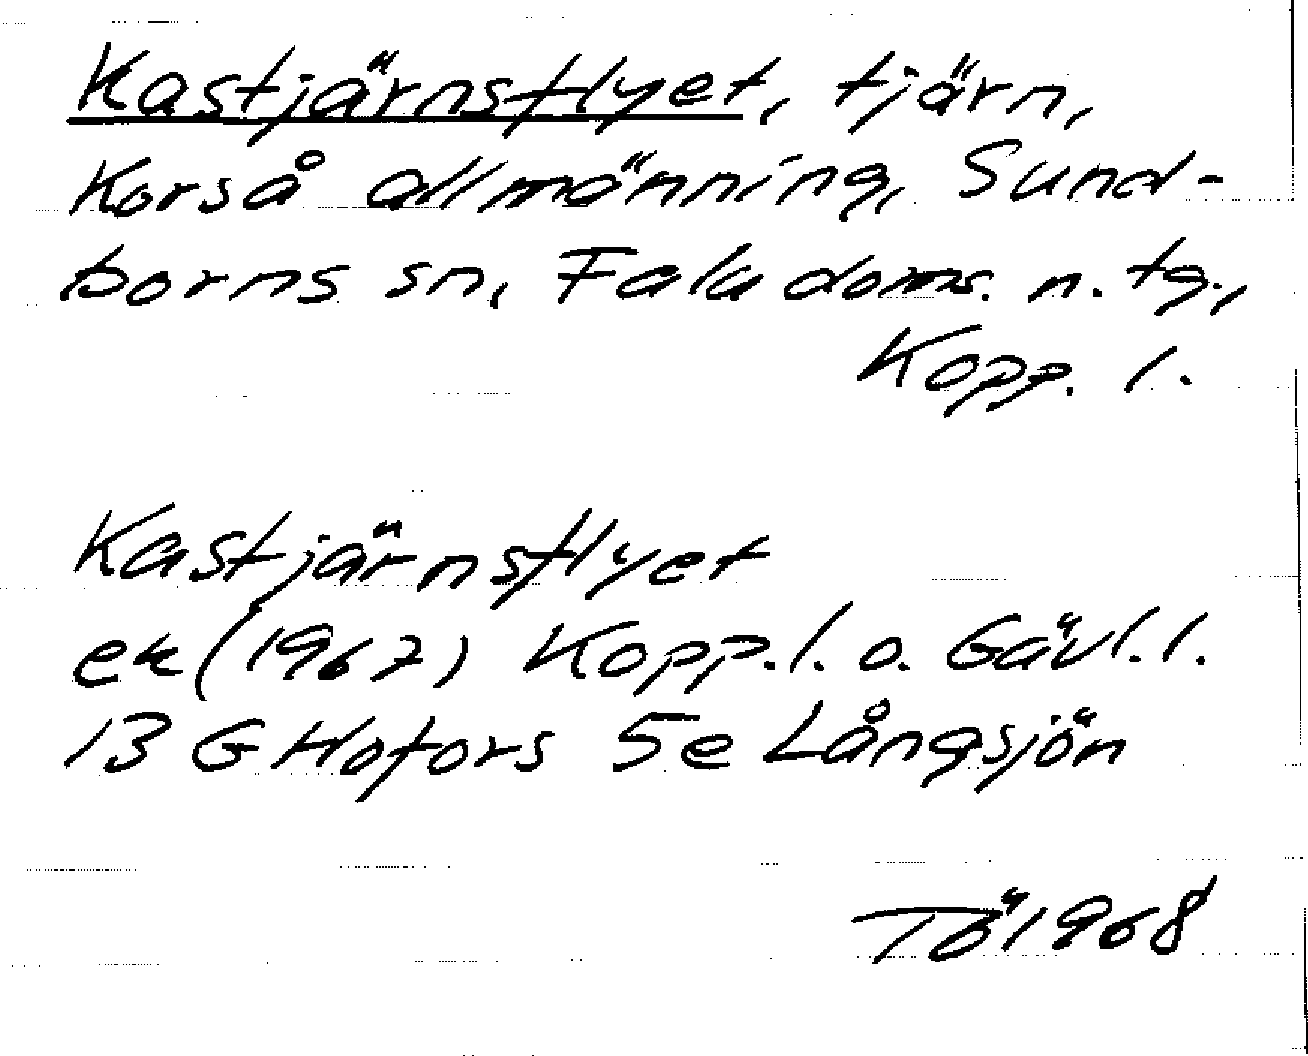 Kastjärnsflyet, tjärn,
Korså allmänning, Sund-
borns sn, Falu doms. n. tg.,
Kopp. l.
Kastjärnsflyet
ek (1967) Kopp. l. o. Gävl. l.
13 G Hofors 5e Långsjön
TÖ 1968